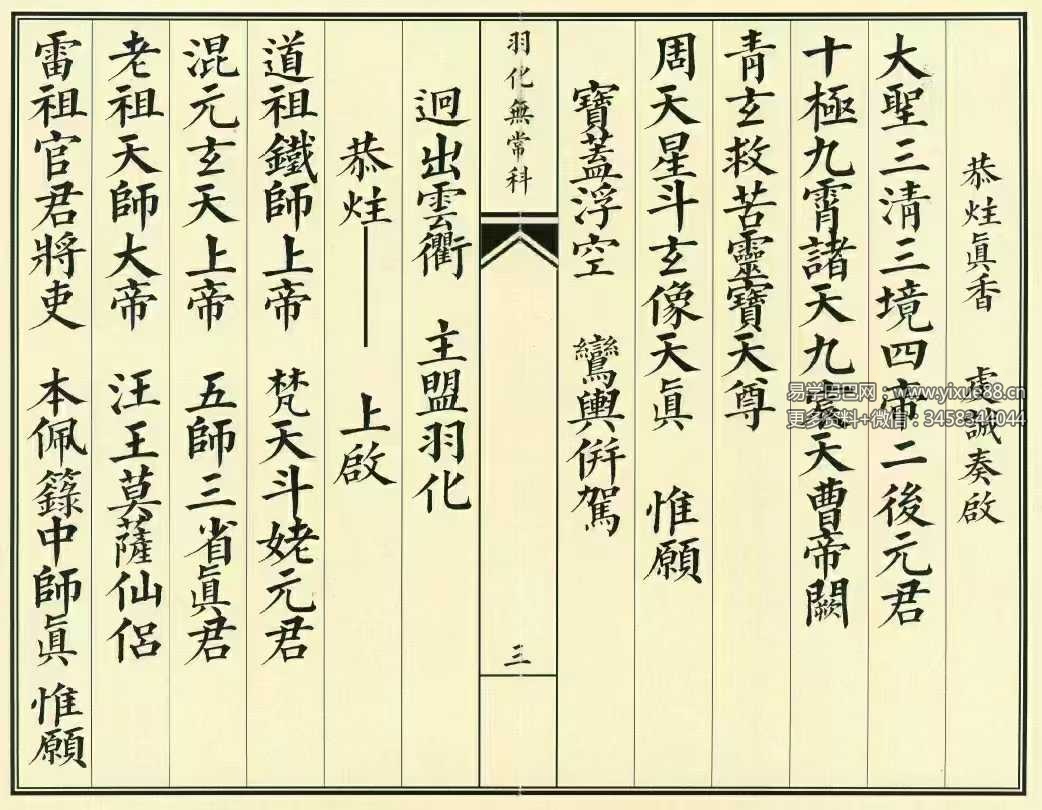 恭炷眞香 虔誠奏啟
大聖三清三境四帝二後元君
十極九霄諸天九宸天曹帝闕
青玄救苦靈寶天尊
周天星斗玄像天眞 惟願
寶蓋浮空 鸞輿併駕
羽化無常科
三
迥出雲衢 主盟羽化
恭炷 上啟
道祖鐵師上帝 梵天斗姥元君
混元玄天上帝 五師三省眞君
老祖天師大帝 汪王莫薩仙侶
雷祖官君將吏 本佩籙中師眞 惟願
易学巴巴网:www.yixue88.cn
更多资料+微信:3458344044